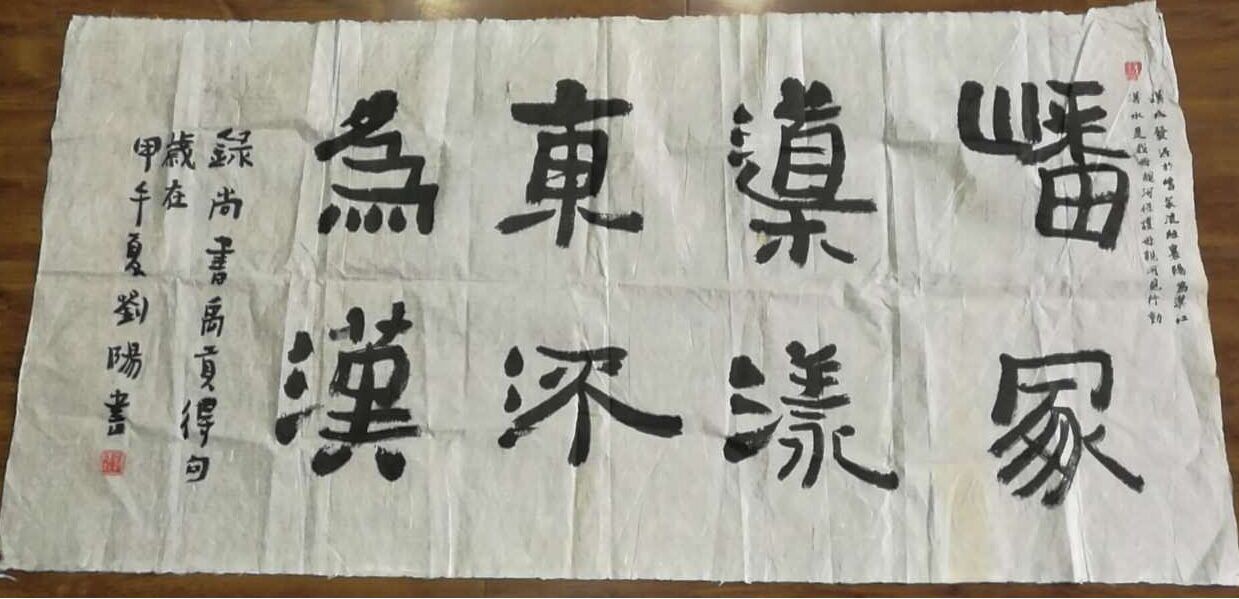 漢水發源於嶓冢流經襄陽為襄江
漢水是我母親河保護母親河見行動
嶓冢
導漾
東流
為漢
錄尚書禹貢得句
歲在
甲午夏劉陽書